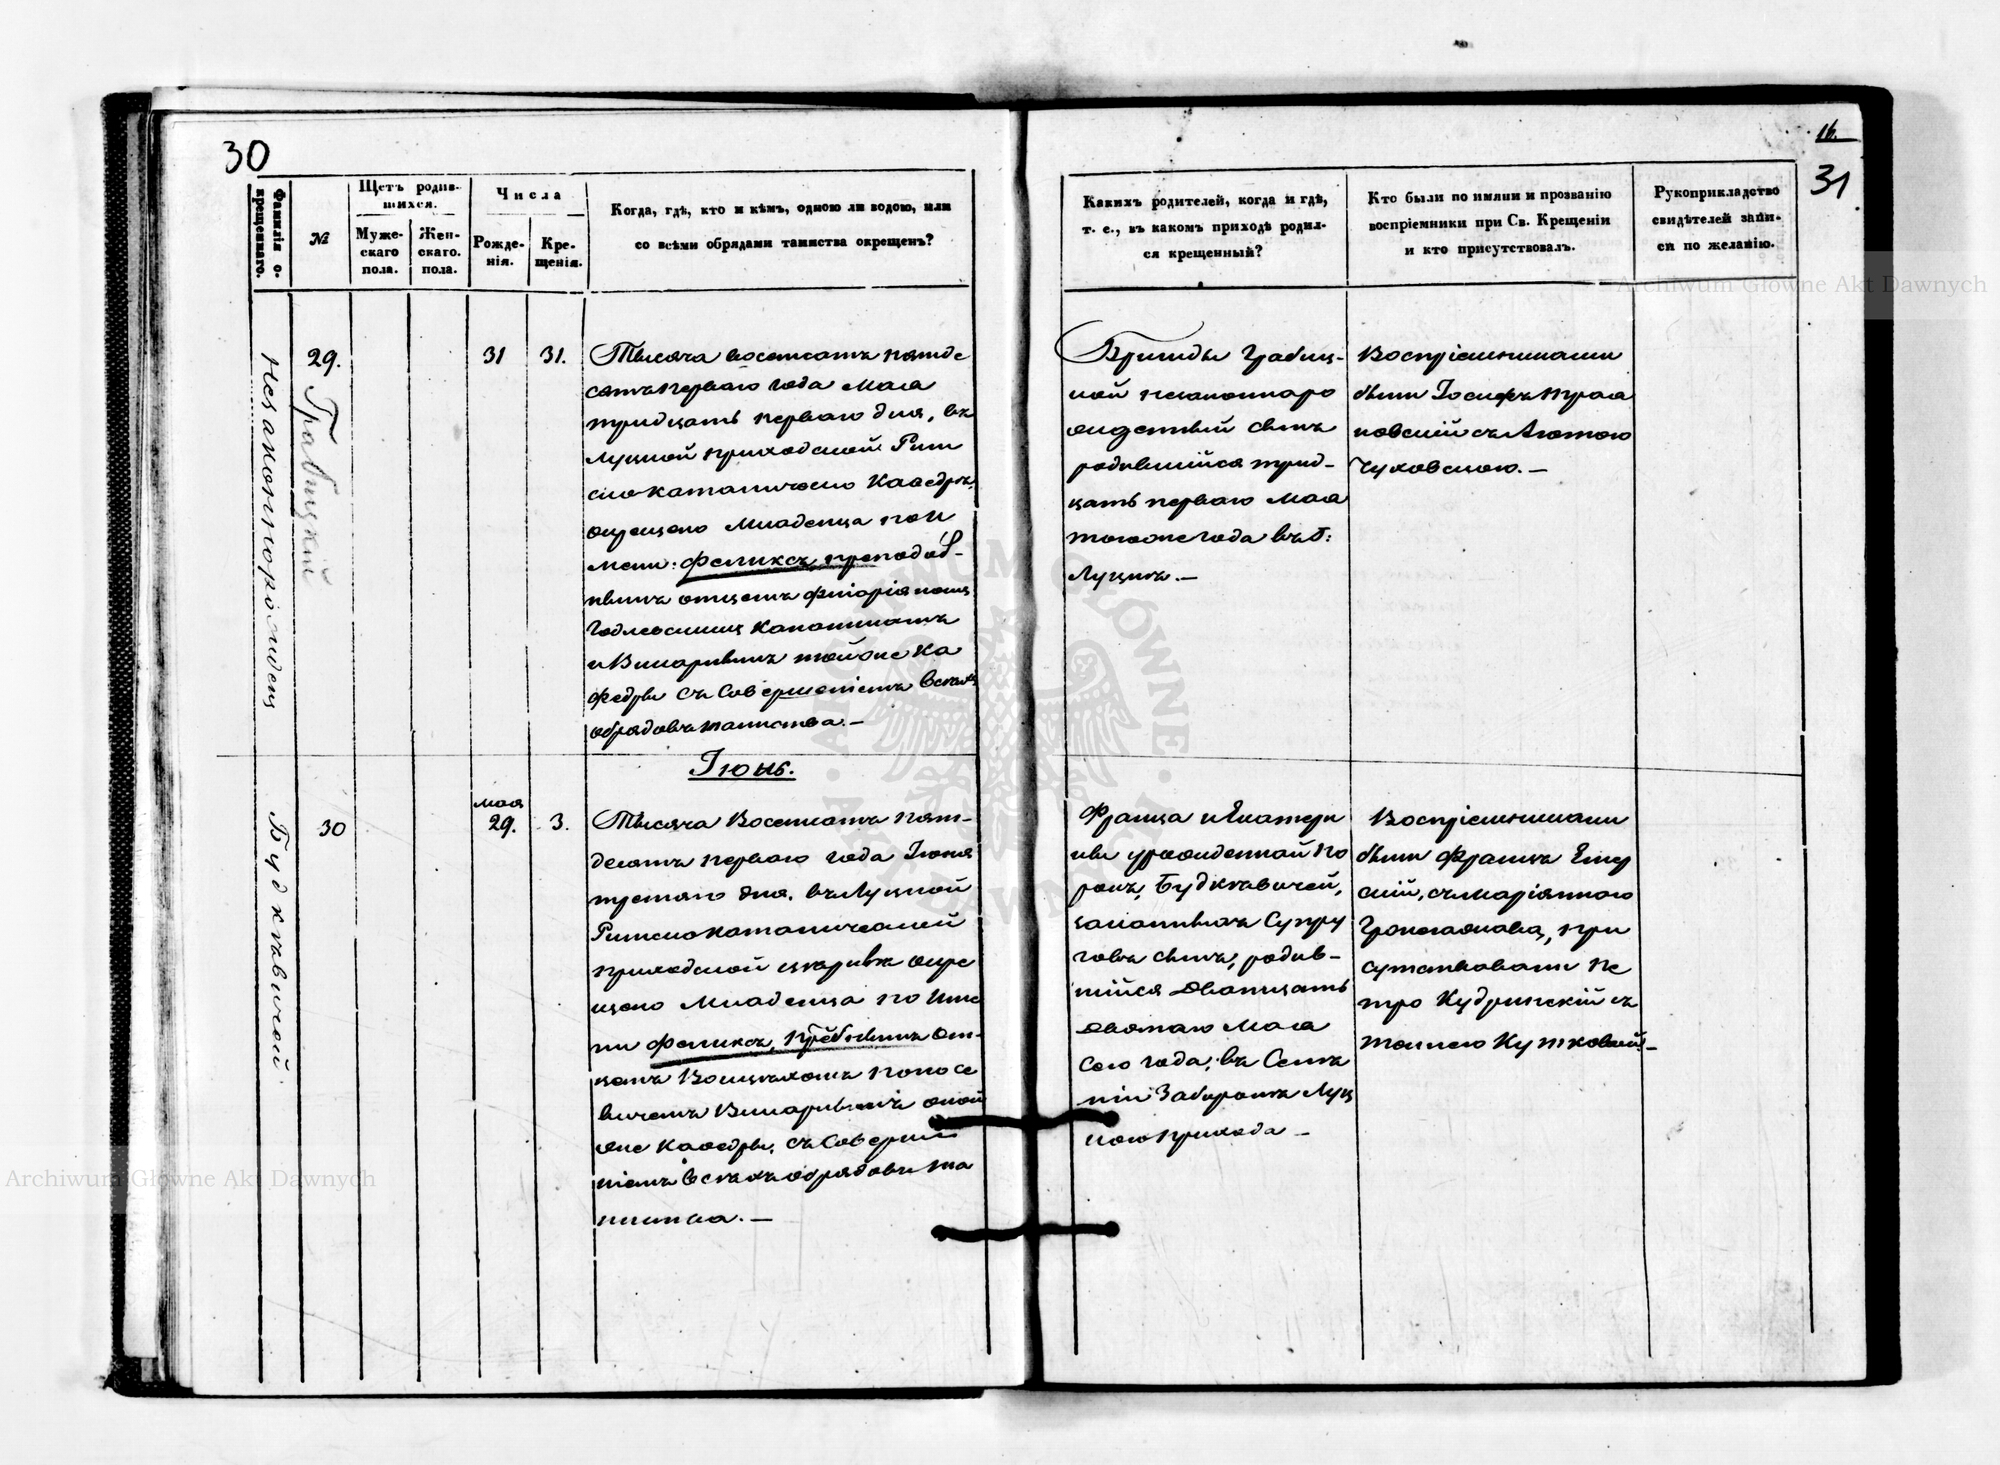 30
16.
31
Фамилія о-
крещеннаго.
№
Щетъ родив-
шихся.
Муже-
скаго
пола.
Жен-
скаго.
пола.
Числа
Рожде-
нія.
Кре-
щенія.
Когда, гдѣ, кто и кѣмъ, одною ли водою, или
со всѣми обрядами таинства окрещенъ?
Незаконнорожденец
Гравицкій
29.
31
31.
Тысяча восемсотъ пятде
сятъ перваго года Мая
тридцать перваго дня, въ
Луцкой приходской Рим
ско католическо Каѳедрѣ,
окрещено Младенца по И
мени: Феликсъ, преподоб-
нымъ отцемъ Флоріяномъ
Годлевскимъ Капелланомъ
и Викарнымъ той же Ка
федры съ Совершеніемъ всѣхъ
обрядовъ таинства. —
Іюнь.
Будкѣвичей
30
мая
29.
3.
Тысяча Восемсотъ пят-
десятъ перваго года Іюня
третяго дня, въ Луцкой
Римско католической
приходской церквѣ окре
щено Младенца по Име
ни Феликсъ,
цемъ Войцѣхомъ
вичемъ Викарнымъ оной
же Каѳедры, съ Соверше
ніемъ всѣхъ обрядовъ та
инства. —
Какихъ родителей, когда и гдѣ,
т. е., въ какомъ приходѣ родил-
ся крещенный?
Кто были по имяни и прозванію
воспріемники при Св. Крещеніи
и кто присутствовалъ.
Рукоприкладство
свидѣтелей запи-
си по желанію.
Бригиды Грабиц-
кой незаконноро
жденный сынъ
родившійся трид-
цать перваго Мая
того же года въ Г:
Луцкѣ. —
Воспріемниками
были Іосифъ Тра
новскій съ Агатою
Чуховскою. —
Франца и Екатери
ны урожденной По
Будкѣвичей,
законныхъ Супру
говъ сынъ, родив-
шійся двадцать
девятаго Мая
сего года; въ Селѣ
Заборолѣ Луц
кого прихода —
Воспріемниками
были Францъ
скій, съ Маріянною
при
сутствовали Пе
тро Кудринскій съ
Теклею Кутковской —
Archiwum Główne Akt Dawnych
Archiwum Główne Akt Dawnych